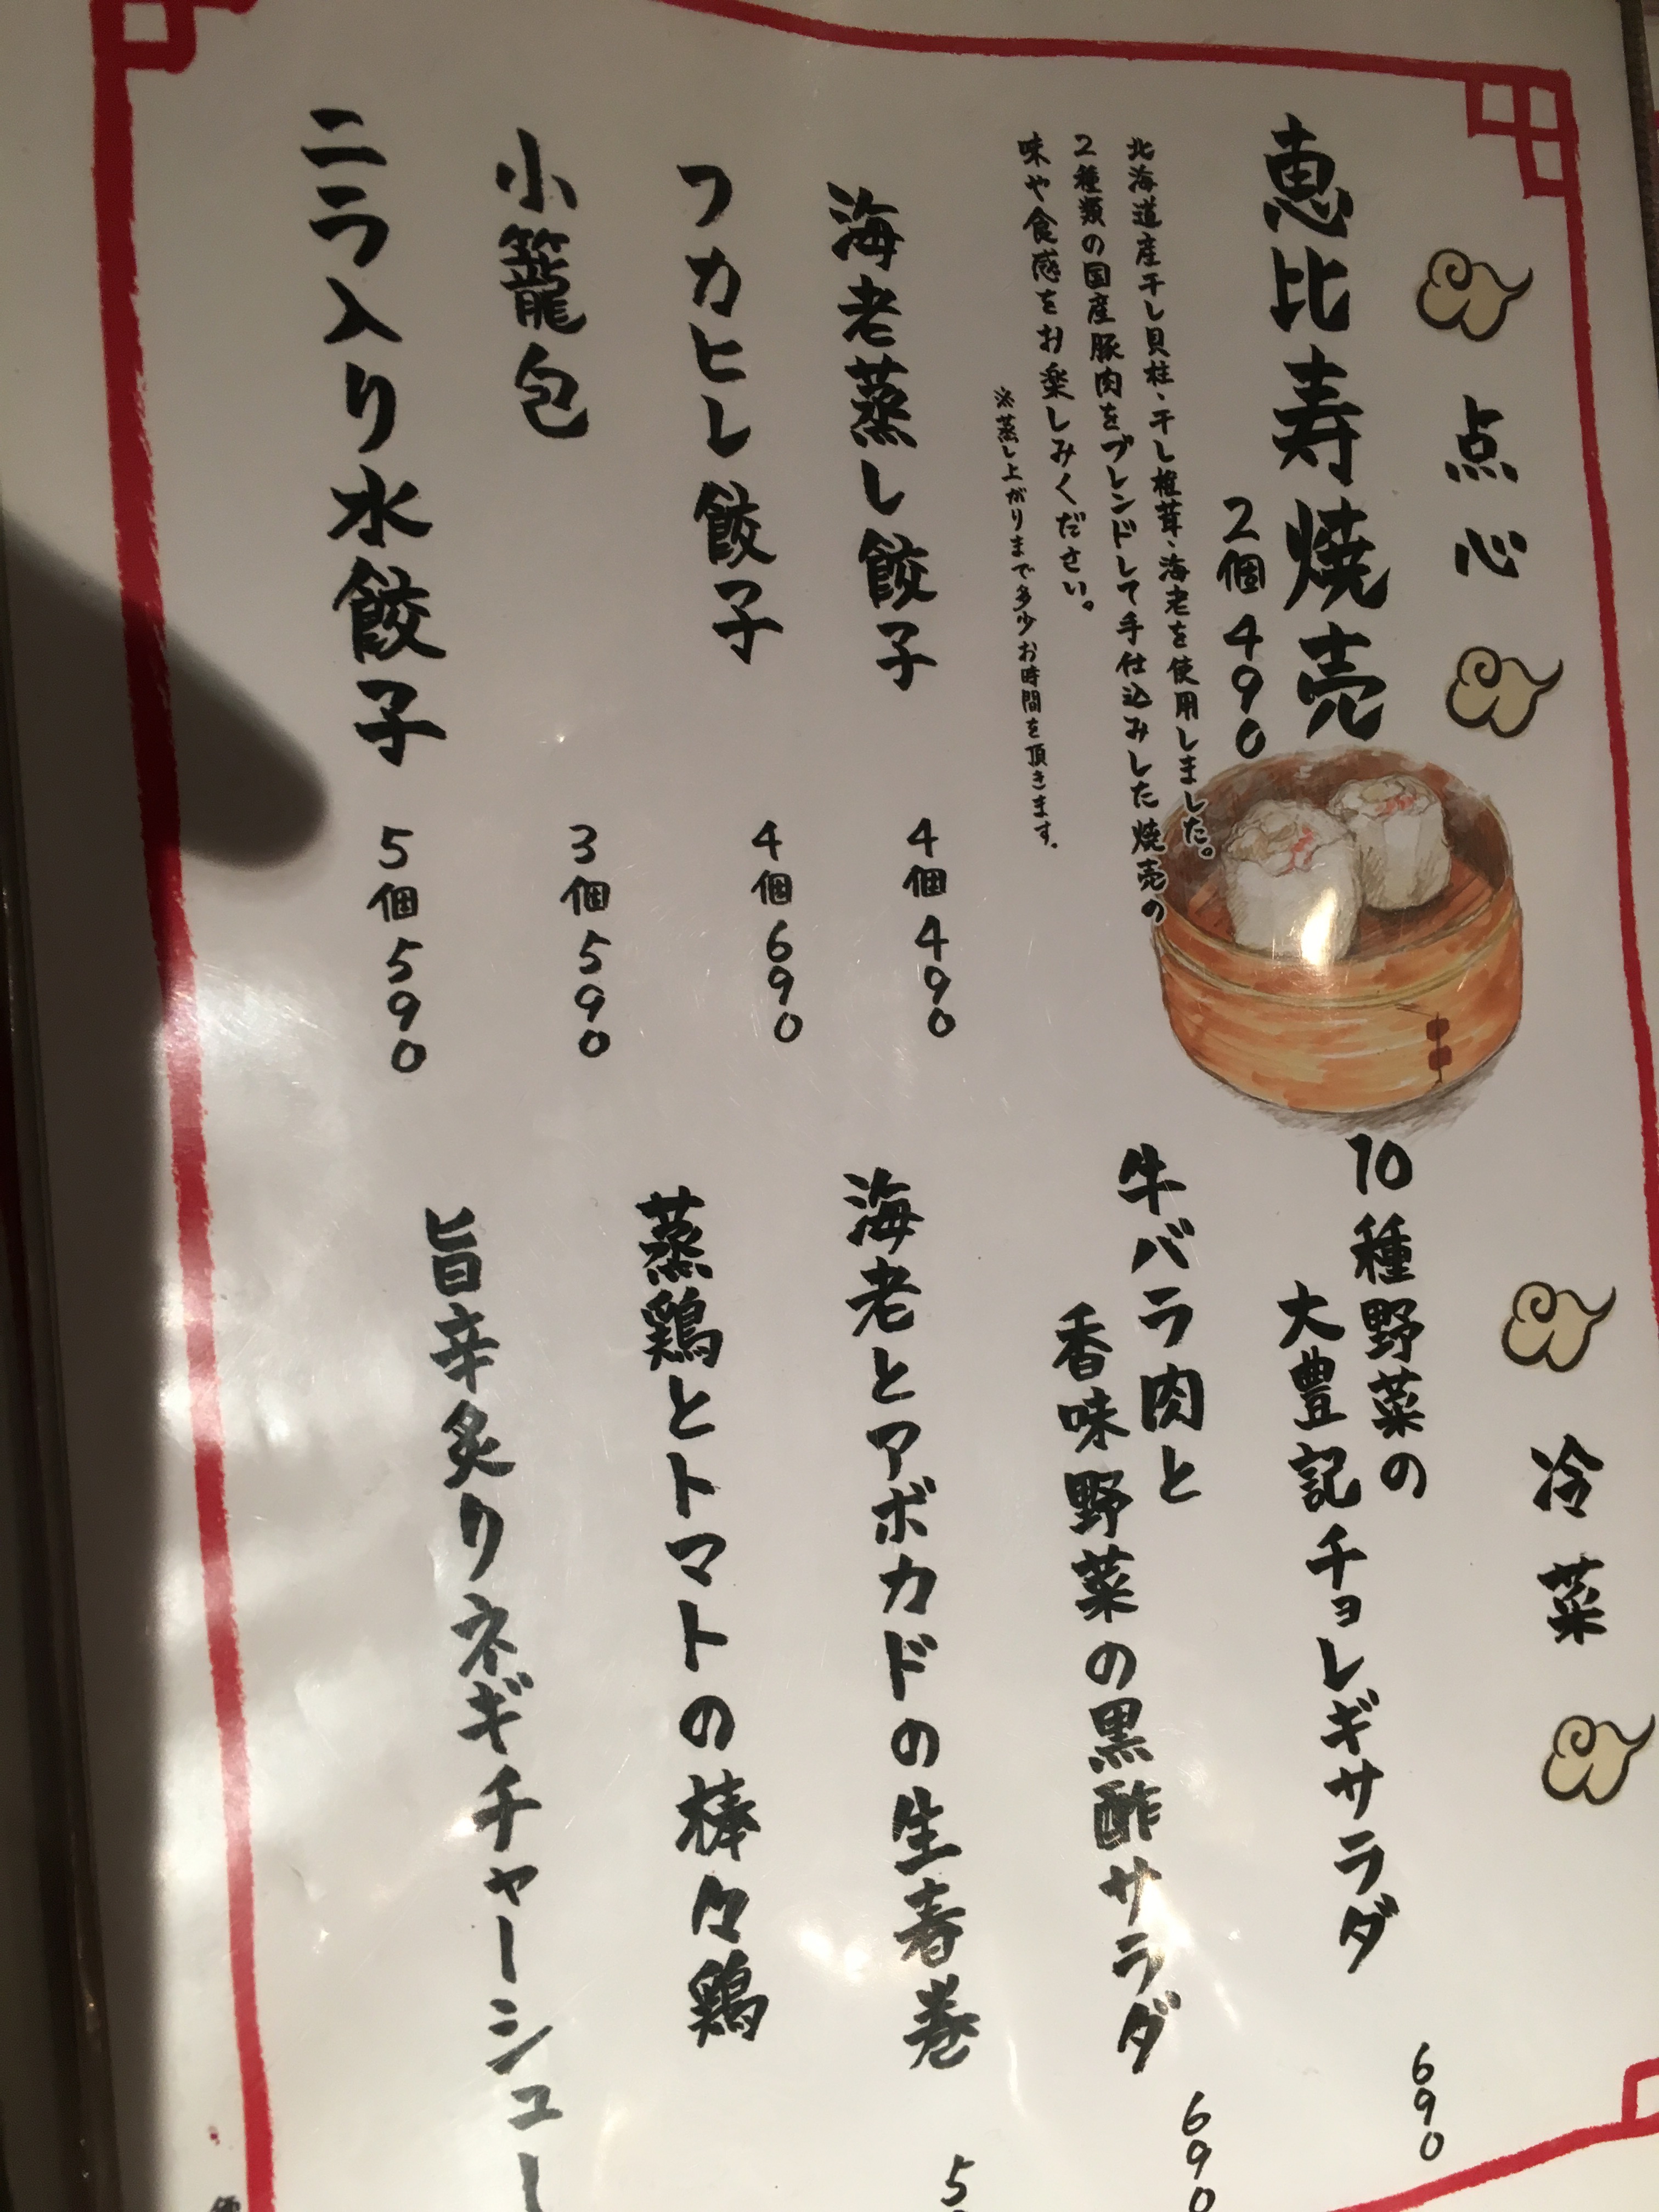 点心
恵比寿焼売
2個 490
北海道産干し貝柱、干し椎茸、海老を使用しました。
2種類の国産豚肉をブレンドして手仕込みした焼売の
味や食感をお楽しみください。
※蒸し上がりまで多少お時間を頂きます。
海老蒸し餃子 4個 490
フカヒレ餃子 4個 690
小籠包 3個 590
ニラ入り水餃子 5個 590
冷菜
10種野菜の
大豊記チョレギサラダ 690
牛バラ肉と
香味野菜の黒酢サラダ 690
海老とアボカドの生春巻 5
蒸鶏とトマトの棒々鶏
旨辛炙りネギチャーシュー